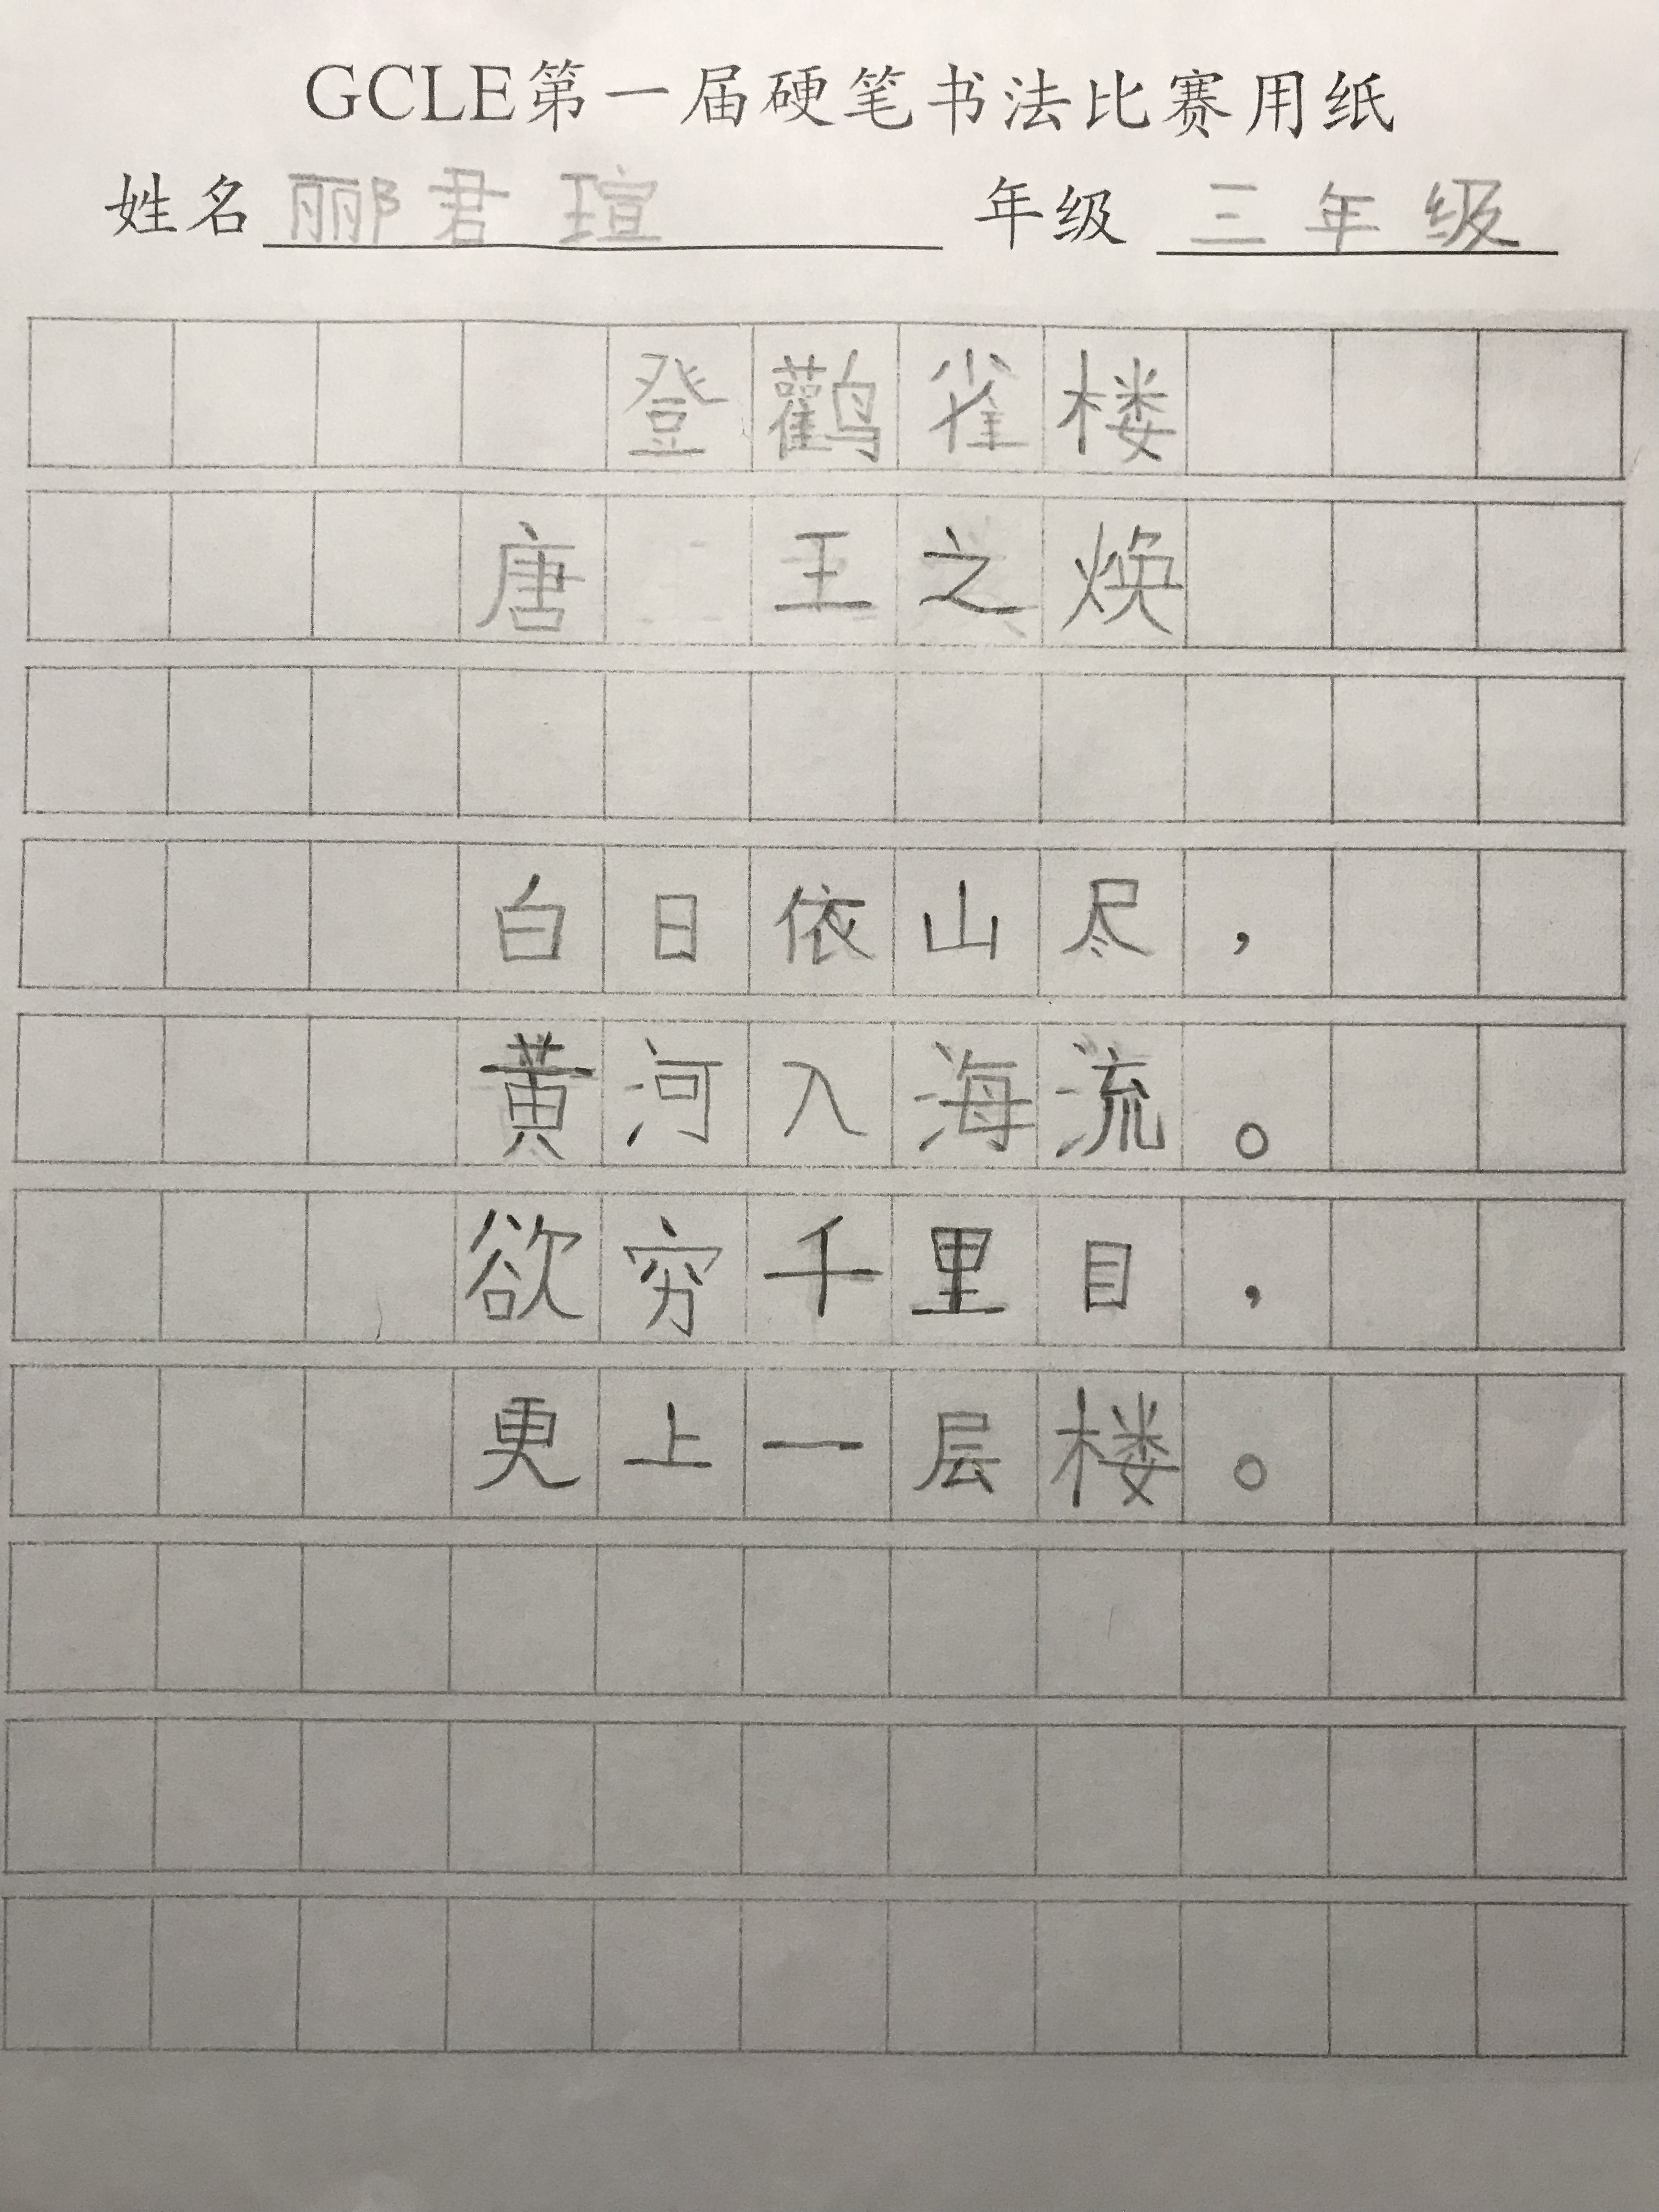 GCLE第一届硬笔书法比赛用纸
姓名 郦君瑄 年级 三年级
登鹳雀楼
唐 王之焕
白日依山尽，
黄河入海流。
欲穷千里目，
更上一层楼。